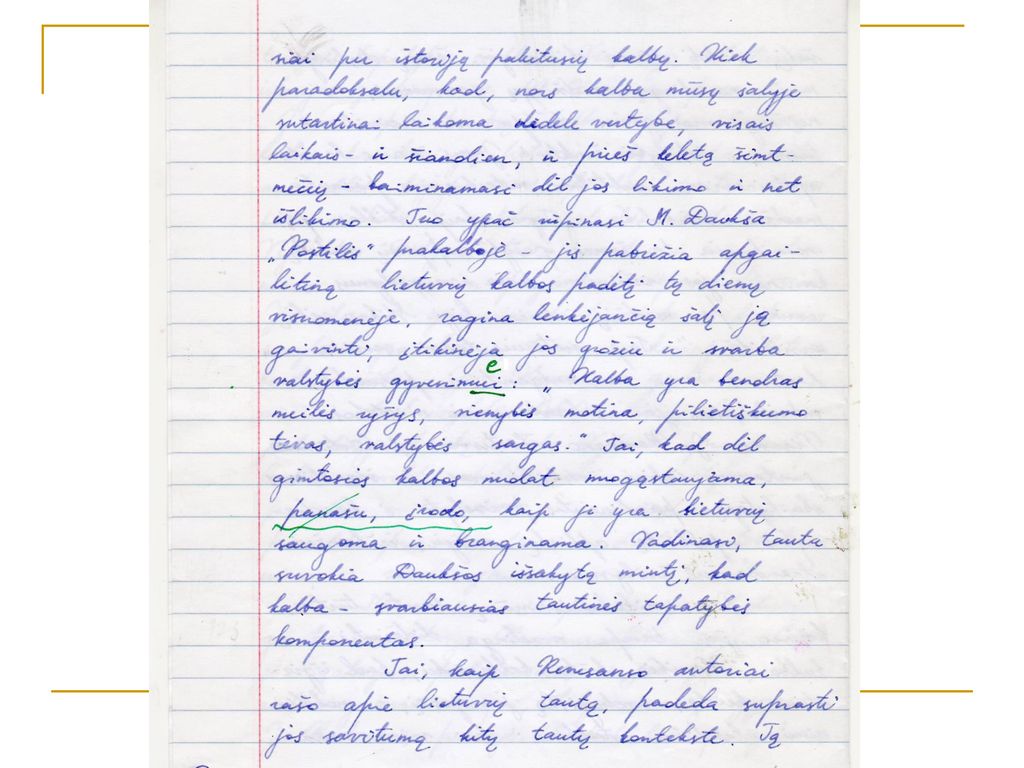 siai per istoriją pakitusių kalbų. Kiek
paradoksalu, kad, nors kalba mūsų šalyje
sutartinai laikoma didele vertybe, visais
laikais - ir šiandien, ir prieš keletą šimt-
mečių - baiminamasi dėl jos likimo ir net
išlikimo. Tuo ypač rūpinasi M. Daukša
„Postilės“ prakalboje - jis pabrėžia apgai-
lėtiną lietuvių kalbos padėtį tų dienų
visuomenėje, ragina lenkėjančią šalį ją
gaivinti, įtikinėja jos grožiu ir svarba
e
valstybės gyvenimui: „Kalba yra bendras
meilės ryšys, vienybės motina, pilietiškumo
tėvas, valstybės sargas.“ Tai, kad dėl
gimtosios kalbos nuolat nuogąstaujama,
panašu, įrodo, kaip ji yra lietuvių
saugoma ir branginama. Vadinasi, tauta
suvokia Daukšos išsakytą mintį, kad
kalba - svarbiausias tautinės tapatybės
komponentas.
Tai, kaip Renesanso autoriai
rašo apie lietuvių tautą, padeda suprasti
jos savitumą kitų tautų kontekste. Tą